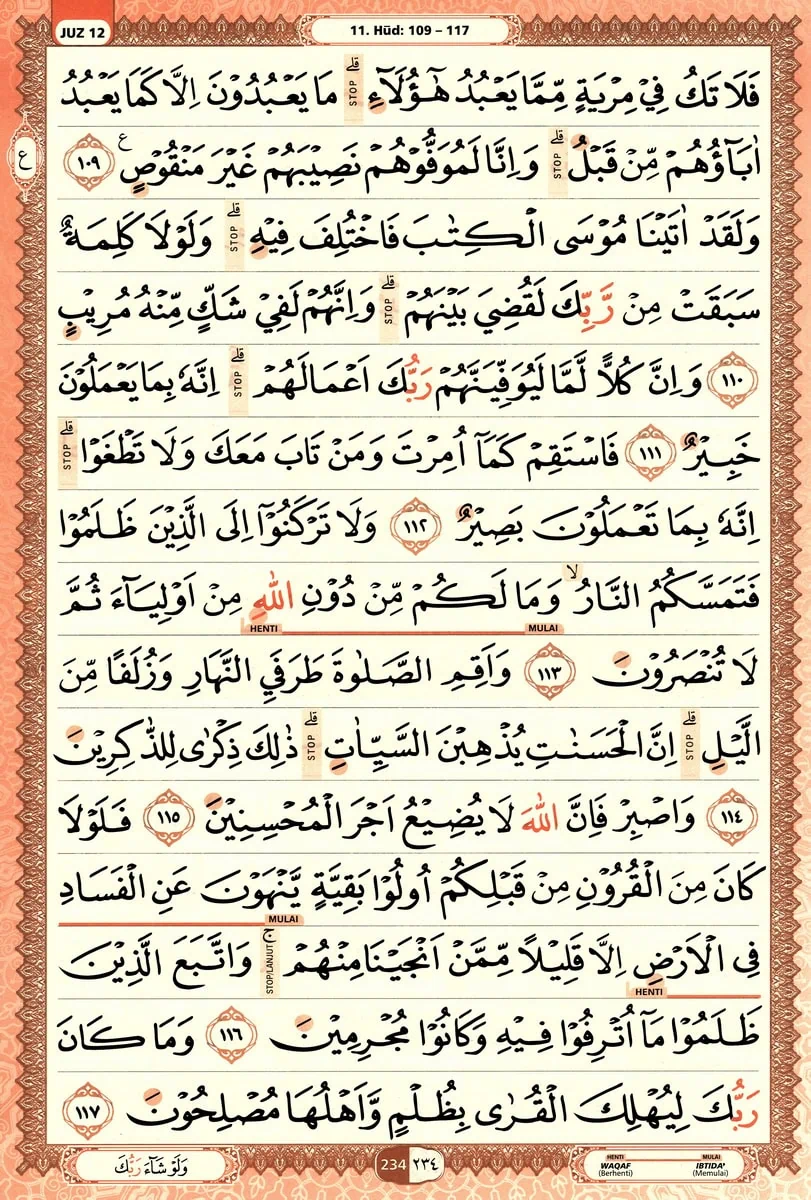 JUZ 12
11. Hūd: 109 – 117
فَلَا تَكُ فِيْ مِرْيَةٍ مِّمَّا يَعْبُدُ هٰٓؤُلَاۤءِ ۗ STOP مَا يَعْبُدُوْنَ اِلَّا كَمَا يَعْبُدُ
ع
اٰبَاۤؤُهُمْ مِّنْ قَبْلُ ۗ STOP وَاِنَّا لَمُوَفُّوْهُمْ نَصِيْبَهُمْ غَيْرَ مَنْقُوْصٍ ع ١٠٩
وَلَقَدْ اٰتَيْنَا مُوْسَى الْكِتٰبَ فَاخْتُلِفَ فِيْهِ ۗ STOP وَلَوْلَا كَلِمَةٌ
سَبَقَتْ مِنْ رَّبِّكَ لَقُضِيَ بَيْنَهُمْ ۗ STOP وَاِنَّهُمْ لَفِيْ شَكٍّ مِّنْهُ مُرِيْبٍ
١١٠ وَاِنَّ كُلًّا لَّمَّا لَيُوَفِّيَنَّهُمْ رَبُّكَ اَعْمَالَهُمْ ۗ STOP اِنَّهٗ بِمَا يَعْمَلُوْنَ
خَبِيْرٌ ١١١ فَاسْتَقِمْ كَمَآ اُمِرْتَ وَمَنْ تَابَ مَعَكَ وَلَا تَطْغَوْا ۗ STOP
اِنَّهٗ بِمَا تَعْمَلُوْنَ بَصِيْرٌ ١١٢ وَلَا تَرْكَنُوْٓا اِلَى الَّذِيْنَ ظَلَمُوْا
فَتَمَسَّكُمُ النَّارُ ۙ وَمَا لَكُمْ مِّنْ دُوْنِ اللّٰهِ مِنْ اَوْلِيَاۤءَ ثُمَّ
MULAI HENTI
لَا تُنْصَرُوْنَ ١١٣ وَاَقِمِ الصَّلٰوةَ طَرَفَيِ النَّهَارِ وَزُلَفًا مِّنَ
الَّيْلِ ۗ STOP اِنَّ الْحَسَنٰتِ يُذْهِبْنَ السَّيِّاٰتِ ۗ STOP ذٰلِكَ ذِكْرٰى لِلذّٰكِرِيْنَ
١١٤ وَاصْبِرْ فَاِنَّ اللّٰهَ لَا يُضِيْعُ اَجْرَ الْمُحْسِنِيْنَ ١١٥ فَلَوْلَا
كَانَ مِنَ الْقُرُوْنِ مِنْ قَبْلِكُمْ اُولُوْا بَقِيَّةٍ يَّنْهَوْنَ عَنِ الْفَسَادِ
MULAI
فِى الْاَرْضِ اِلَّا قَلِيْلًا مِّمَّنْ اَنْجَيْنَا مِنْهُمْ ۚ STOP/LANJUT وَاتَّبَعَ الَّذِيْنَ
HENTI
ظَلَمُوْا مَآ اُتْرِفُوْا فِيْهِ وَكَانُوْا مُجْرِمِيْنَ ١١٦ وَمَا كَانَ
رَبُّكَ لِيُهْلِكَ الْقُرٰى بِظُلْمٍ وَّاَهْلُهَا مُصْلِحُوْنَ ١١٧
وَلَوْ شَاۤءَ رَبُّكَ
234 ٢٣٤
HENTI MULAI
WAQAF IBTIDA'
(Berhenti) (Memulai)